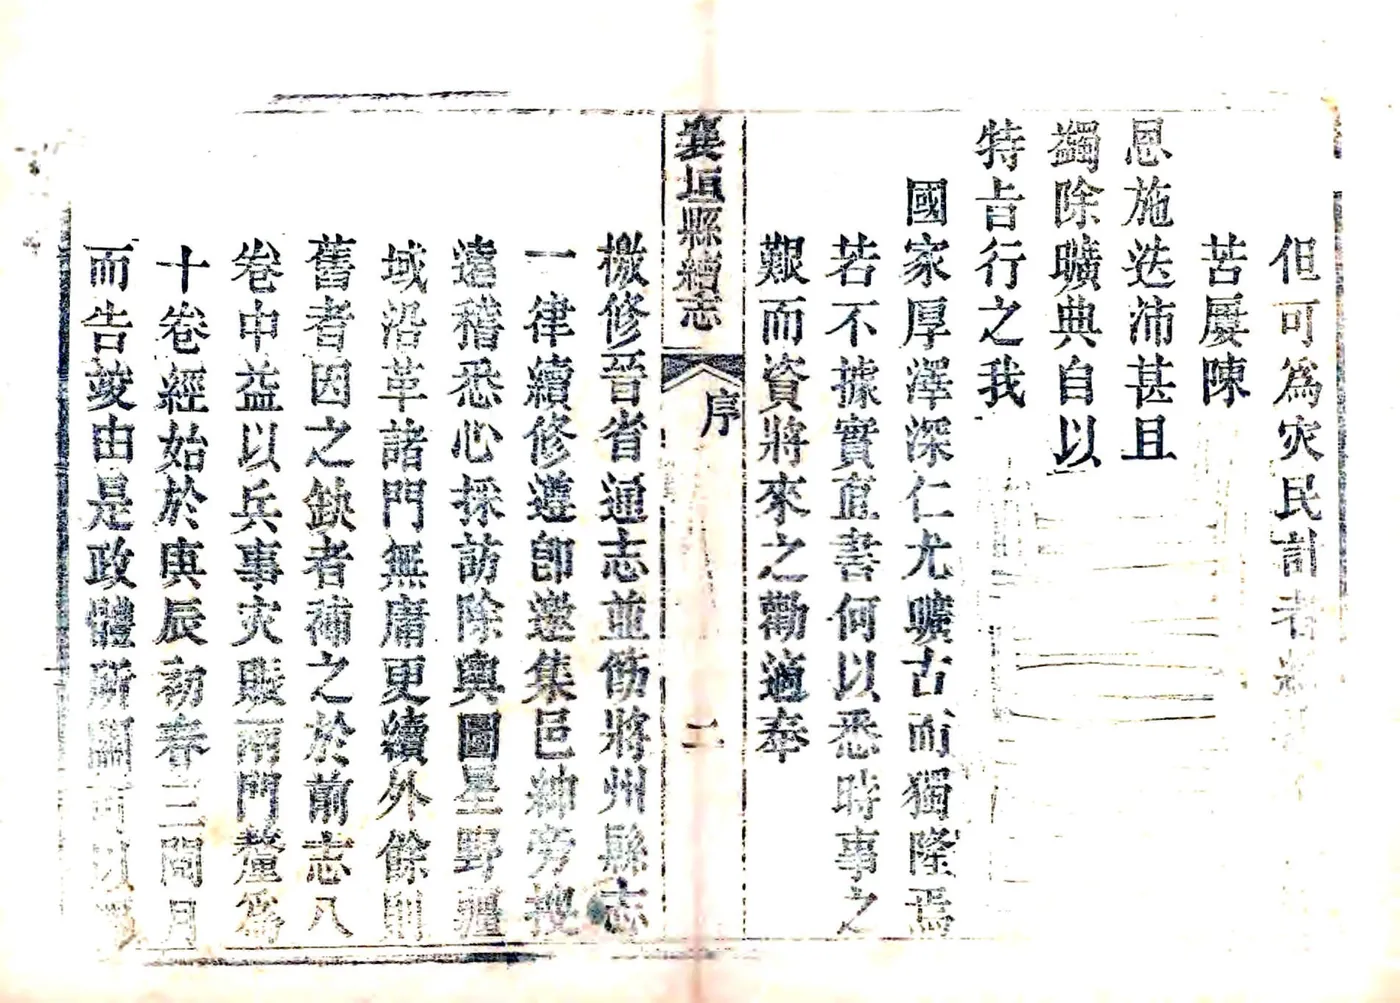 但可爲灾民計者
苦屢陳
恩施迭沛甚且
蠲除曠典自以
特旨行之我
國家厚澤深仁尤曠古而獨隆焉
若不據實直書何以悉時事之
艱而資將來之勸適奉
襄垣縣續志
序
二
檄修晉省通志並飭將州縣志
一律續修遵卽邀集邑紳旁搜
遠稽悉心採訪除輿圖星野疆
域沿革諸門無庸更續外餘則
舊者因之缺者補之於前志八
卷中益以兵事灾賑兩門釐爲
十卷經始於庚辰初春三閱月
而告竣由是政體所關可以